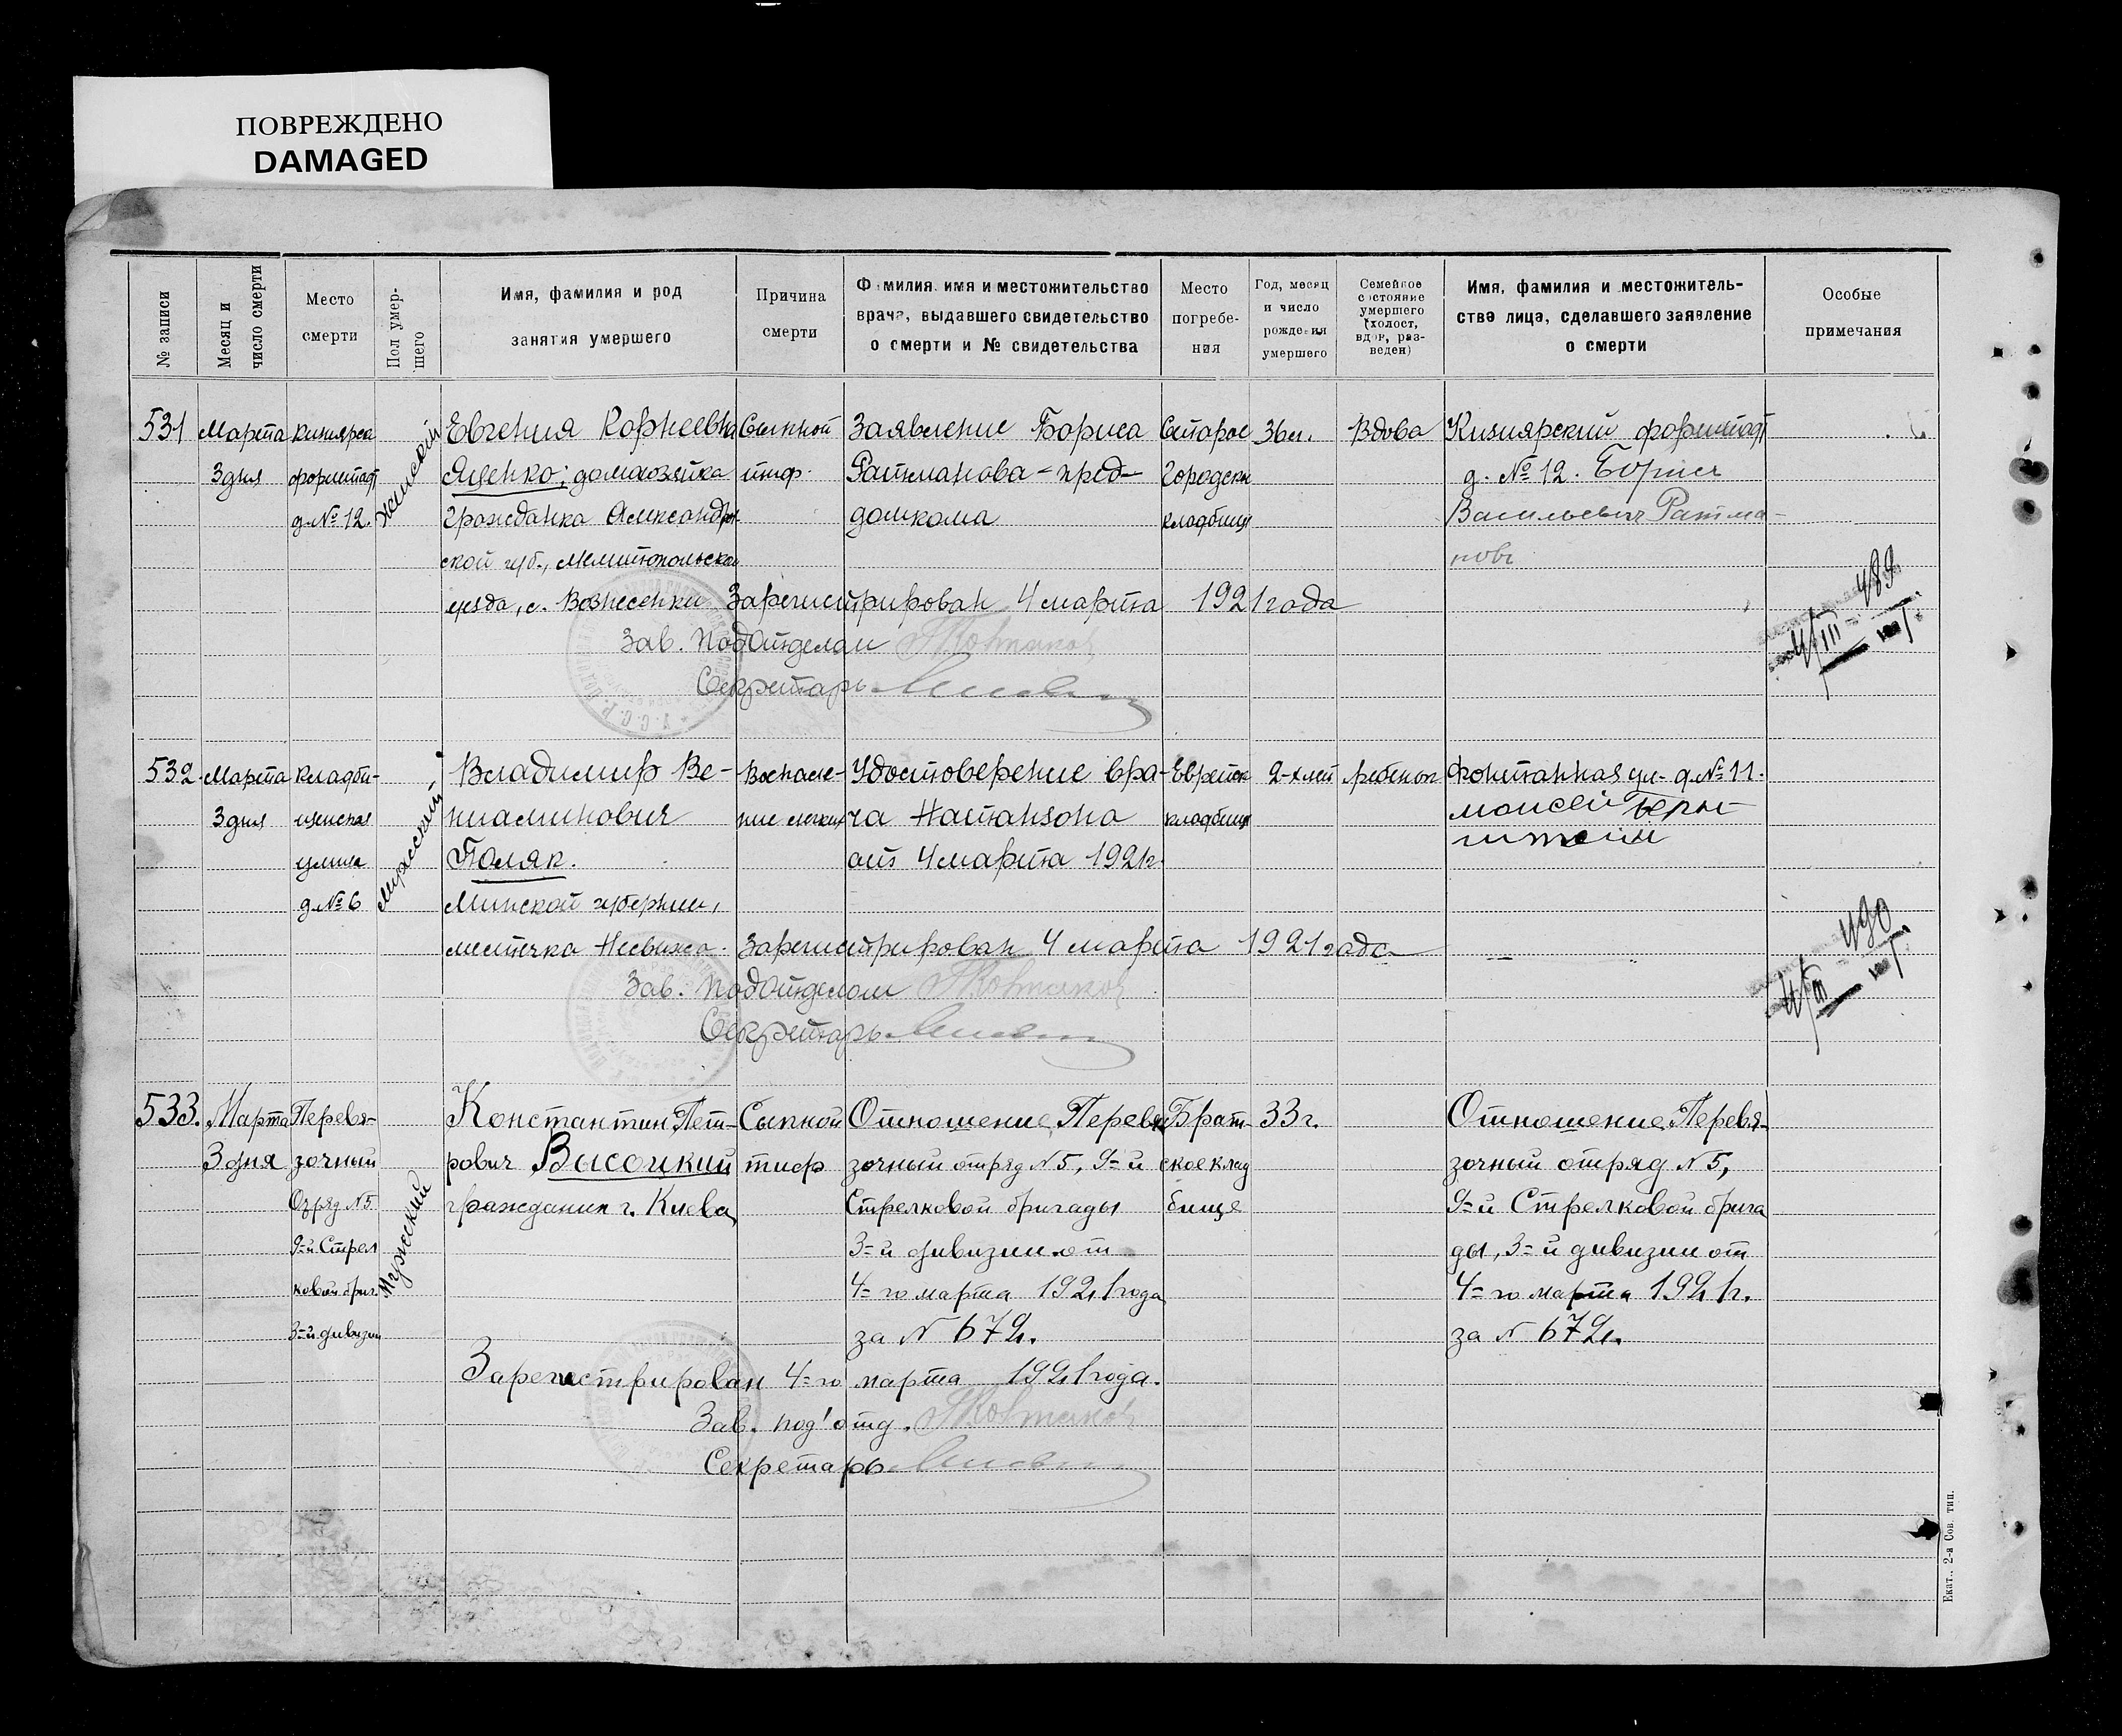 ПОВРЕЖДЕНО
DAMAGED
№ записи
Месяц и
число смерти
Место
смерти
Пол умер-
шего
Имя, фамилия и род
занятия умершего
Причина
смерти
Фамилия, имя и местожительство
врача, выдавшего свидетельство
о смерти и № свидетельства
Место
погребе-
ния
Год, месяц
и число
рождения
умершего
Семейное
состояние
умершего
(холост,
вдов, раз-
веден)
Имя, фамилия и местожитель-
ство лица, сделавшего заявление
о смерти
Особые
примечания
531
Марта
3 дня
Кизиярск
форштадт
д. № 12.
Женский
Евгения Корнеевна
Яценко; домохозяйка
гражданка Александров-
ской губ., Мелитопольскаго
уезда, с. Вознесенки
Сыпной
тиф.
Заявление Бориса
Ратманова - пред-
домкома
Старое
городск.
кладбище
36 л.
Вдова
Кизиярский форштадт
д. № 12. Борис
Васильевич Ратма-
новъ
Зарегистрирован 4 марта 1921 года
Зав. подотделом
Секретарь
489
4/III
532.
Марта
3 дня
Кладби-
щенская
улица
д. № 6
Мужеский
Владимир Ве-
ниаминович
Поляк.
Минской губернии,
местечка Несвижа.
Воспале-
ние легких
Удостоверение вра-
ча Натанзона
от 4 марта 1921 г.
Еврейск
кладбище
2-х лет
ребенок
Фонтанная ул. д. № 11.
Моисей Берн-
штейн
Зарегистрирован 4 марта 1921 года
Зав. подотделом
Секретарь
490
4/III
533.
Марта
3 дня
Перевя-
зочный
Отряд N 5
9-й Стрел
ковой бриг.
3-й дивизии
Мужеский
Константин Пет-
рович Высоцкий
гражданин г. Киева
Сыпной
тиф
Отношение Перевя-
зочный отряд N 5, 9-й
Стрелковой бригады
3-й дивизии от
4-го марта 1921 года
за N 672.
Брат-
ское клад
бище
33 г.
Отношение Перевя-
зочный отряд N 5,
9-й Стрелковой брига
ды, 3-й дивизии от
4-го марта 1921 г.
за N 672.
Зарегестрирован 4-го марта 1921 года.
Зав. под'отд.
Секретарь
Екат., 2-я Сов. тип.